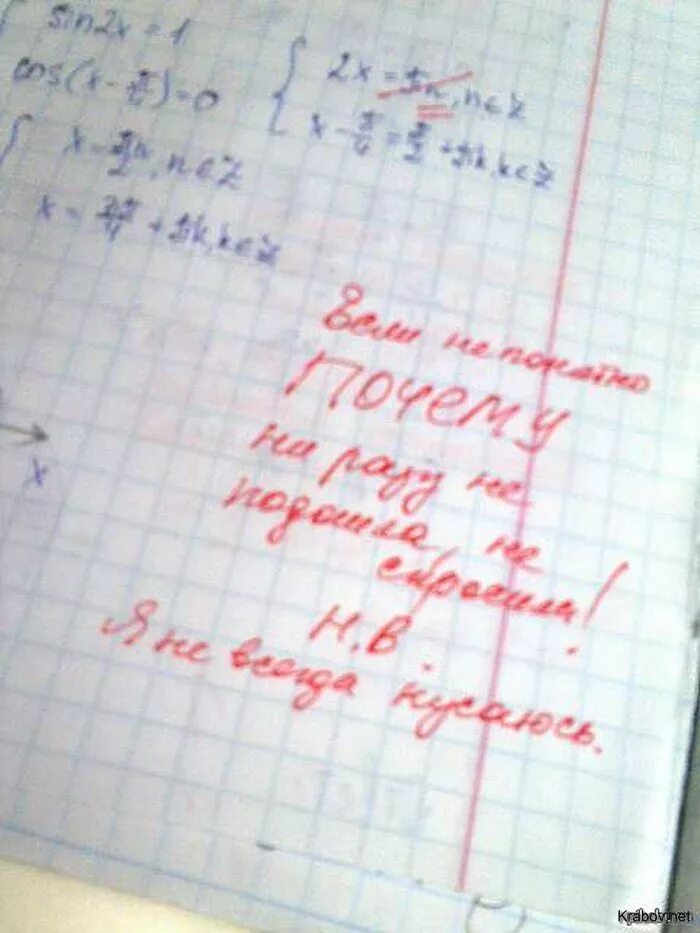 sin2x = 1
cos(x - π/4) = 0
2x = πn, n ∈ Z
x - π/4 = π/2 + πk, k ∈ Z
x = πn/2, n ∈ Z
x = 3π/4 + πk, k ∈ Z
x
Если непонятно
Почему
ни разу не
подошла, не
спросила!
Н.В.
Я не всегда кусаюсь.
Krabov.net